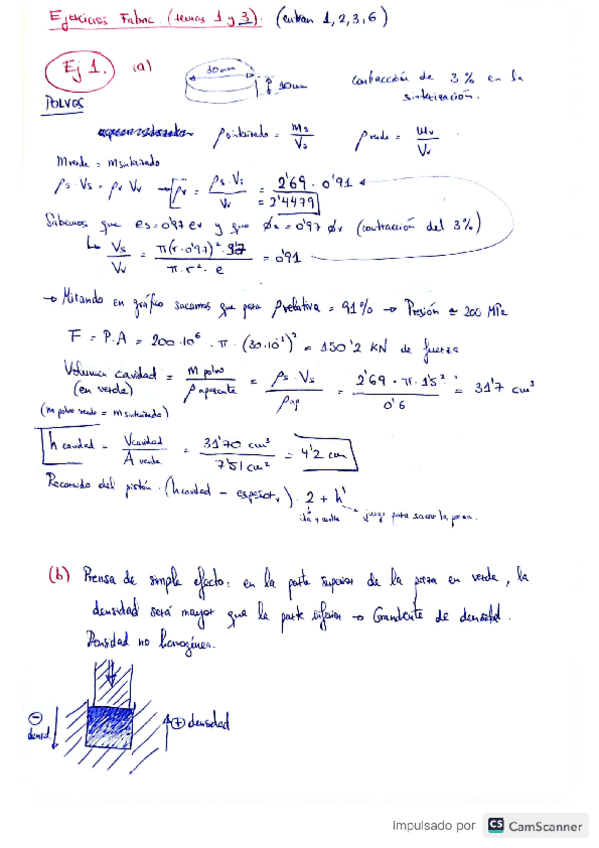 Ejercicios Fabric. (temas 1 y 3). (entran 1, 2, 3, 6)
Ej 1. (a)
30mm
10mm
contracción de 3% en la
sinterización.
POLVOS
ρ sinterizado = ms/Vs
ρ verde = mv/Vv
m verde = m sinterizado
ρs · Vs = ρv Vv → ρv = ρs · Vs / Vv = 2'69 · 0'91
= 2'4479
Sabemos que es = 0'97 ev y que øs = 0'97 øv (contracción del 3%)
↳ Vs/Vv = π(r · 0'97)² · 9'7 / π · r² · e = 0'91
→ Mirando en gráfico sacamos que para ρ relativa = 91% → Presión ≈ 200 MPa
F = P · A = 200 · 10⁶ · π · (30 · 10⁻³)² = 150'2 kN de fuerza
Volumen cavidad = m polvo / ρ aparente = ρs · Vs / ρap = 2'69 · π · 1'5² / 0'6 = 31'7 cm³
(en verde)
(m polvo verde = m sinterizado)
h cavidad = V cavidad / A verde = 31'70 cm³ / 7'51 cm² = 4'2 cm
Recorrido del pistón. (h cavidad − espesor v) · 2 + h'
ida y vuelta
juego para sacar la pieza.
(b) Prensa de simple efecto: en la parte superior de la pieza en verde, la
densidad será mayor que la parte inferior → Gradiente de densidad.
Densidad no homogénea.
⊖
densid.
⊕ densidad
Impulsado por CS CamScanner